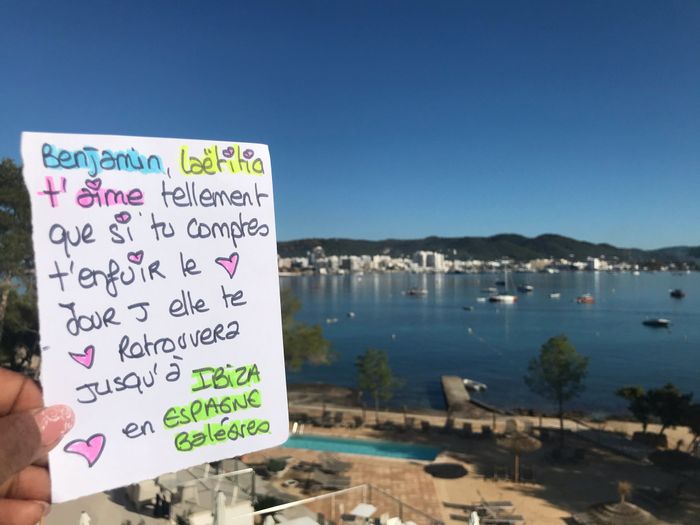 Benjamin, Laëtitia
t'aime tellement
que si tu comptes
t'enfuir le
Jour J elle te
Retrouvera
jusqu'à IBIZA
en ESPAGNE
Baléares